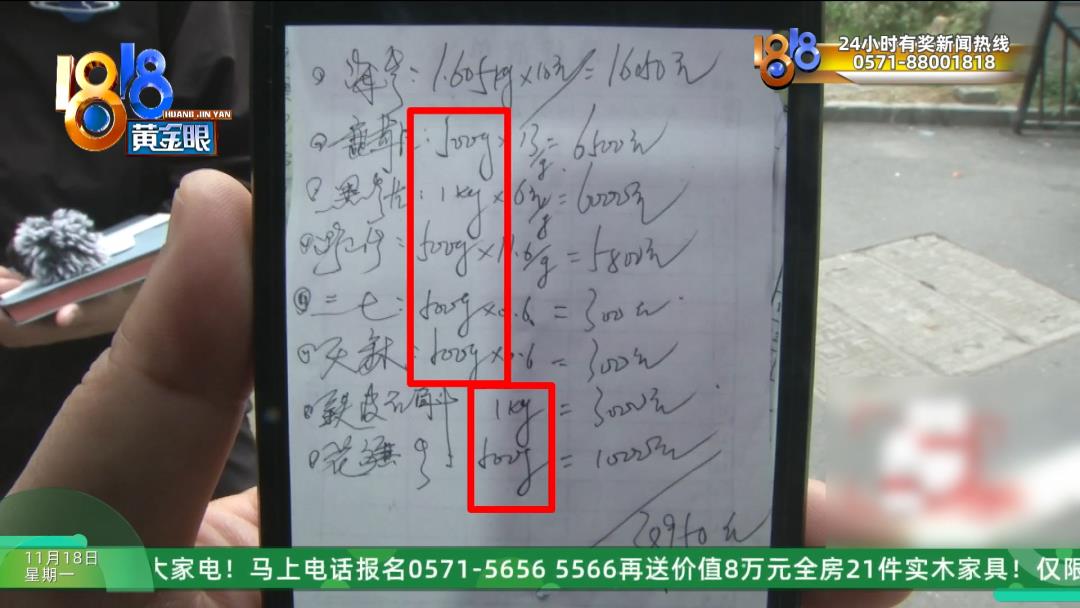 1818
HUANG JIN YAN
黄金眼
1818
24小时有奖新闻热线
0571-88001818
1.605kg×10元=16050元
500g×13/g=6500元
1kg×6元/g=6000元
500g×11.6/g=5800元
三七:500g×0.6=300元
天麻:500g×0.6=300元
铁皮石斛 1kg=3000元
500g=1000元
38950元
11月18日
星期一
大家电!马上电话报名0571-5656 5566再送价值8万元全房21件实木家具!仅限